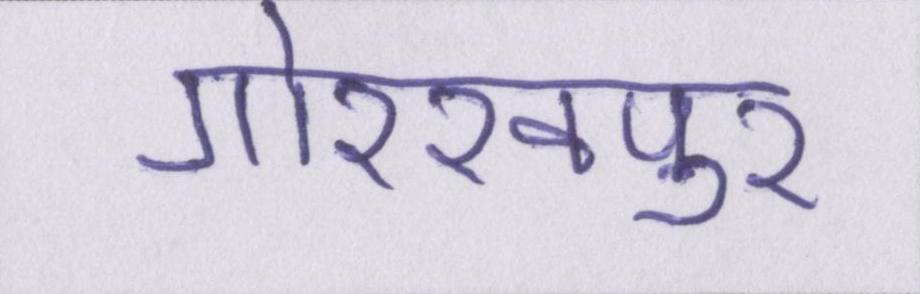 गोरखपुर